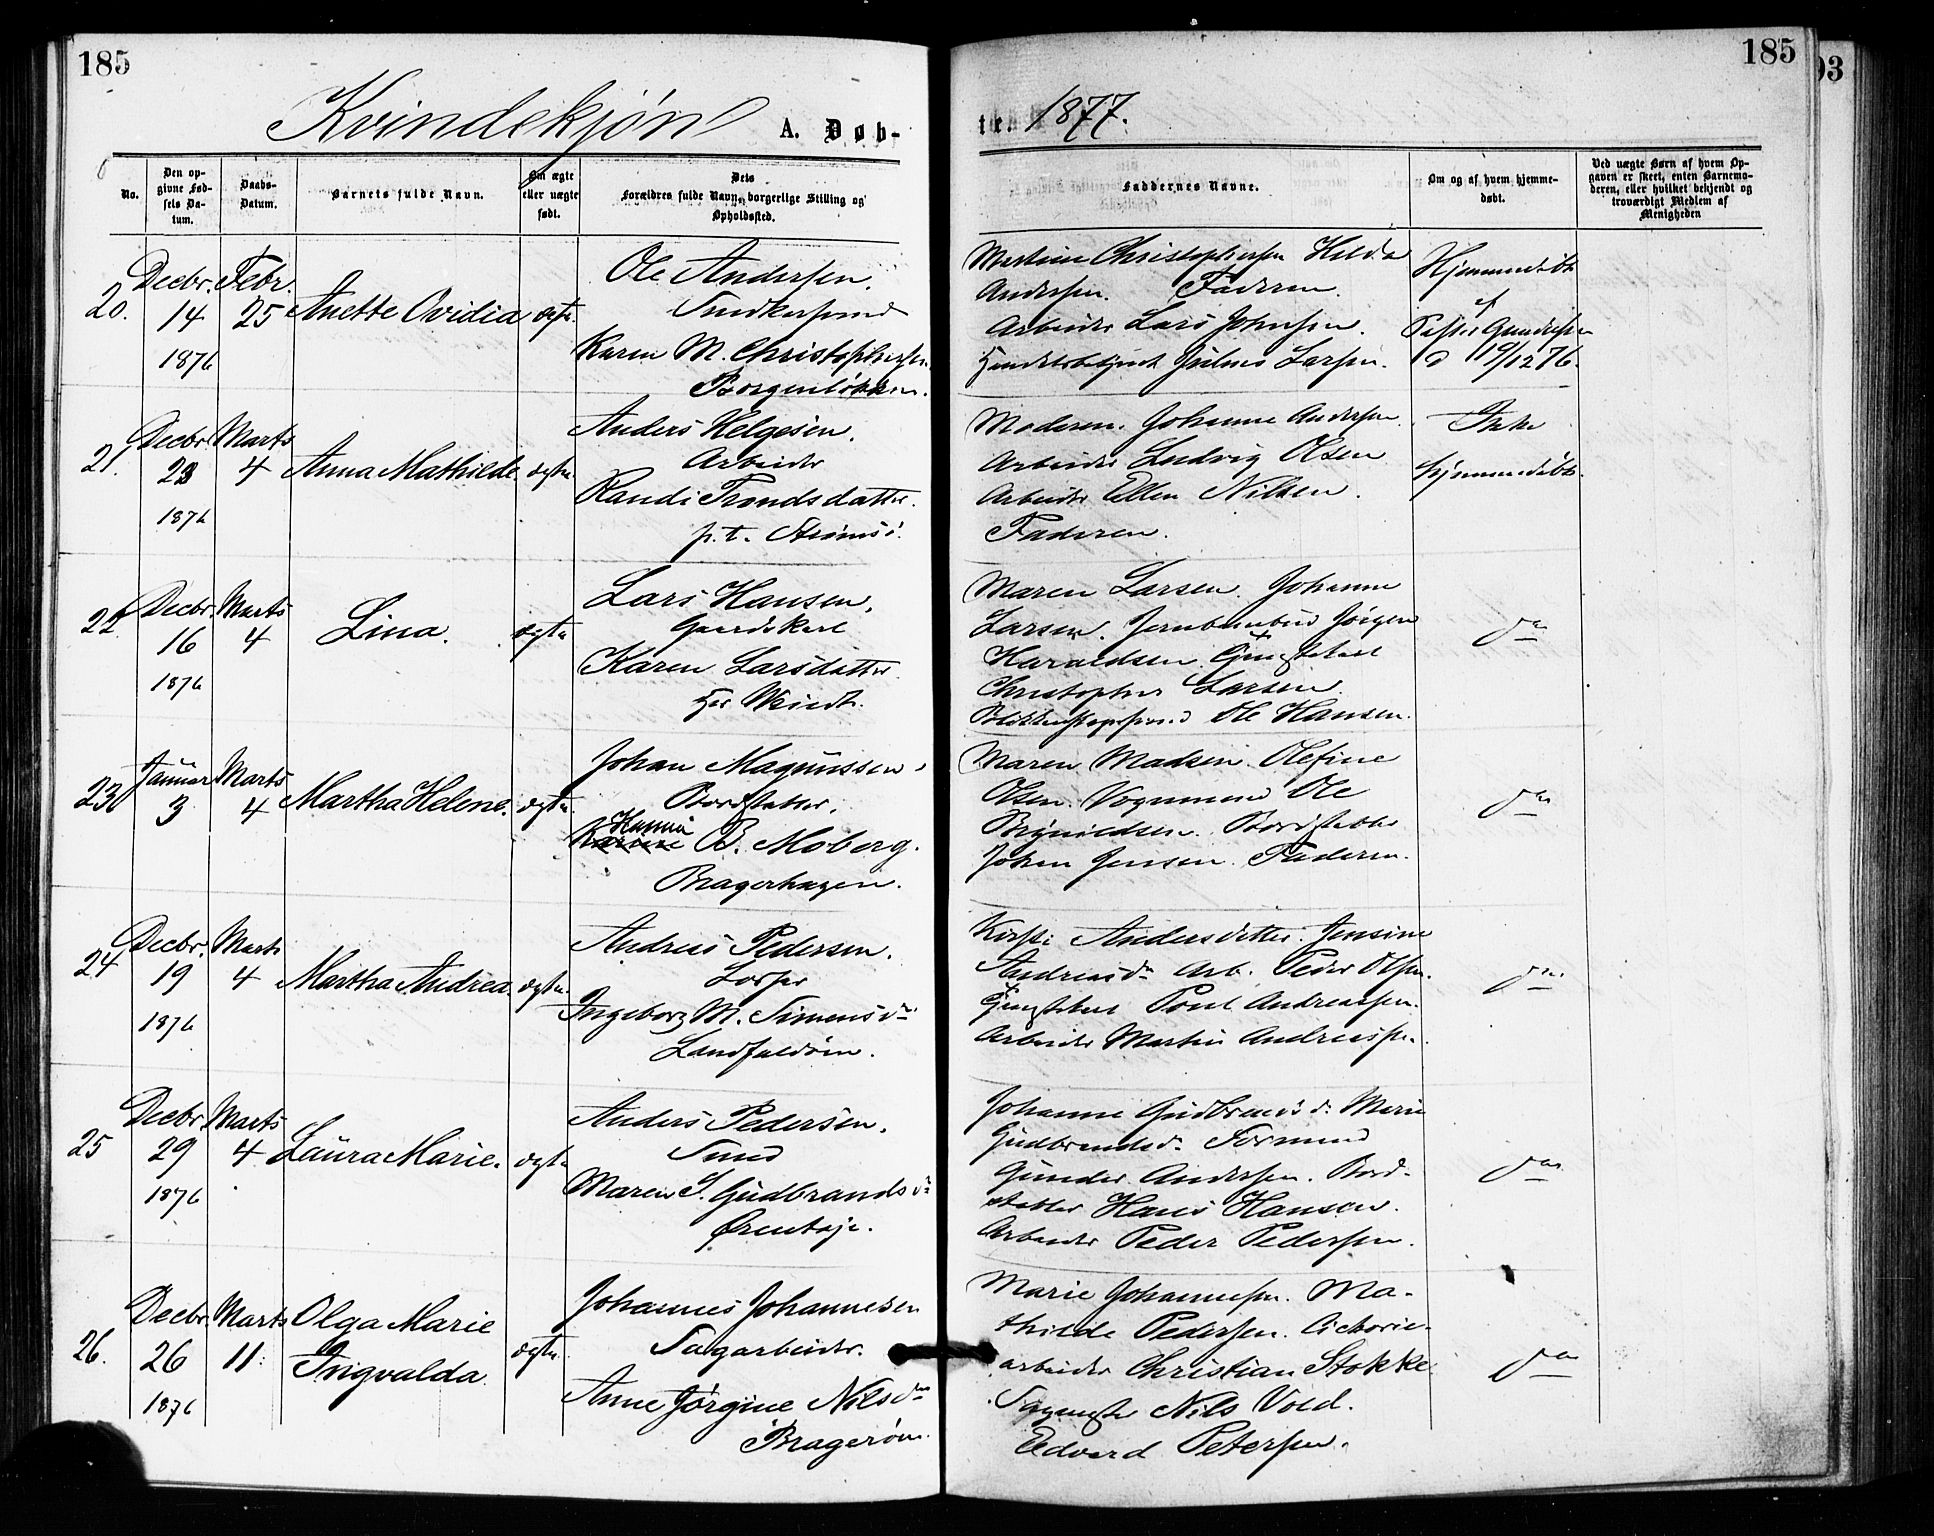 185
185
93
Kvindekjøn A. Døb-
te. 1877.
No.
Den op-
givne Fød-
sels Da-
tum.
Daabs-
Datum.
Barnets fulde Navn.
Om ægte
eller uægte
født.
Dets
Forældres fulde Navn, borgerlige Stilling og
Opholdssted.
Faddernes Navne.
Om og af hvem hjemme-
døbt.
Ved uægte Børn af hvem Op-
gaven er skeet, enten Barnemo-
deren, eller hvilket bekjendt og
troværdigt Medlem af
Menigheden
20. Decbr. 14 1876
Febr. 25
Anette Ovidia
ægte
Ole Andersen.
Snedkersvend
Karen M. Christophersen
Borgenløkken.
Martine Christophersen Hilda
Andersen. Faderen.
Arbeider Lars Johnsen.
Julius Larsen.
Hjemmedøbt
af
Pastor
19/12 76.
21. Decbr. 23 1876
Marts 4
Anna Mathilde.
ægte
Anders Helgesen.
Arbeider
Randi Trondsdatter.
p.t. Strømsø.
Moderen. Johanne Andersen
Arbeider Ludvig Olsen
Arbeider Ellen Nilsen.
Faderen.
Ikke
hjemmedøbt.
22. Decbr. 16 1876
Marts 4
Lina.
ægte
Lars Hansen,
Gaardskarl
Karen Larsdatter.
Maren Larsen. Johanne
Larsen. Jørgen
Haraldsen.
Christopher Larsen.
Ole Hansen.
do
23. Januar 3
Marts 4
Martha Helene.
ægte
Johan Magnussen
Bordstabler.
Karine Hanna B. Moberg.
Bragerhagen.
Maren Madsen. Olefine
Olsen. Vognmand Ole
Brynildsen. Bordstabler
Johan Jensen. Faderen.
do
24 Decbr. 19 1876
Marts 4
Martha Andrea.
ægte.
Andreas Pedersen.
Ingeborg M. Simensdr
Landfaldøen.
Andersdatter. Jensine
Andreasdr Arb. Peder Olsen.
Poul Andreassen.
Arbeider Martin Andreassen.
do
25 Decbr 29 1876
Marts 4
Laura Marie.
ægte
Anders Pedersen.
Smed
Maren S. Gudbrandsdr
Ørentøje.
Johanne Gudbrandsd. Marie
Gudbrandsdr Formand
Gunder Andersen. Bord-
stabler Hans Hansen.
Arbeider Peder Pedersen.
do
26. Decbr. 26 1876
Marts 11.
Olga Marie
Ingvalda
ægte.
Johannes Johannesen
Sagarbeider.
Anne Jørgine Nilsdr
Bragerøen.
Marie Johannesen. Ma-
thilde Pedersen. Cichorie-
arbeider Christian Stokke.
Sagmester Nils Vold.
Edvard Petersen.
do